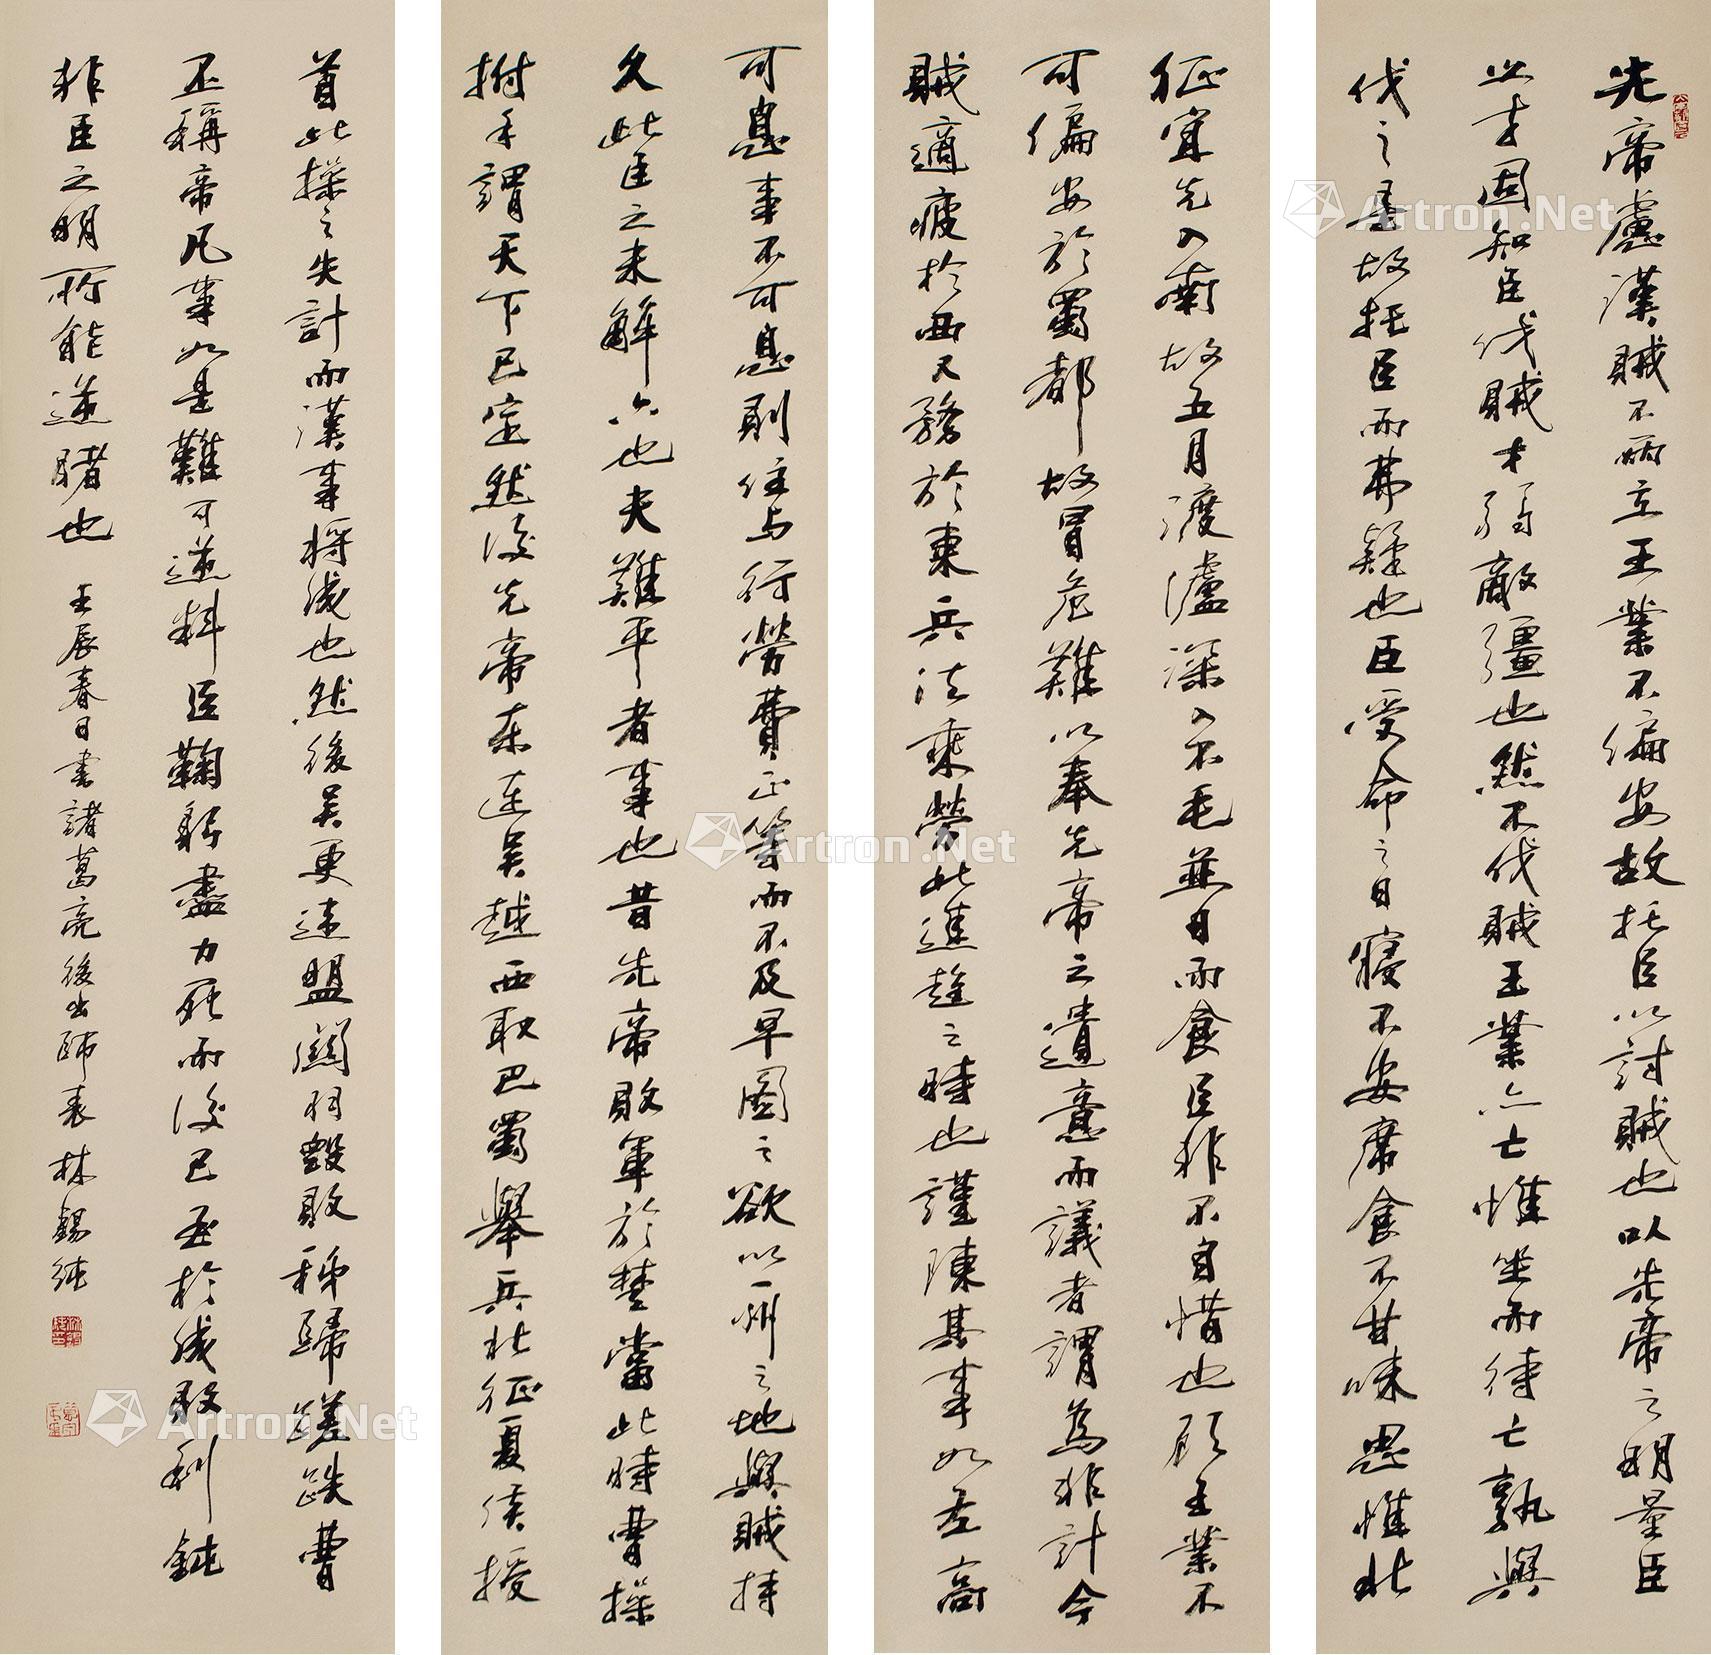 先帝慮漢賊不兩立王業不偏安故托臣以討賊也以先帝之明量臣
之才固知臣伐賊才弱敵彊也然不伐賊王業亦亡惟坐而待亡孰與
伐之是故托臣而弗疑也臣受命之日寢不安席食不甘味思惟北
征宜先入南故五月渡瀘深入不毛並日而食臣非不自惜也顧王業不
可偏安於蜀都故冒危難以奉先帝之遺意而議者謂為非計今
賊適疲於西又務於東兵法乘勞此進趨之時也謹陳其事如左高
可息事不可息則住與行勞費正等而不及早圖之欲以一州之地與賊持
久此臣之未解六也夫難平者事也昔先帝敗軍於楚當此時曹操
拊手謂天下已定然後先帝東連吳越西取巴蜀舉兵北征夏侯授
首此操之失計而漢事將成也然後吳更違盟關羽毀敗秭歸蹉跌曹
丕稱帝凡事如是難可逆料臣鞠躬盡力死而後已至於成敗利鈍
非臣之明所能逆睹也
壬辰春日書諸葛亮後出師表林錫純
Artron.Net
Artron.Net
Artron.Net